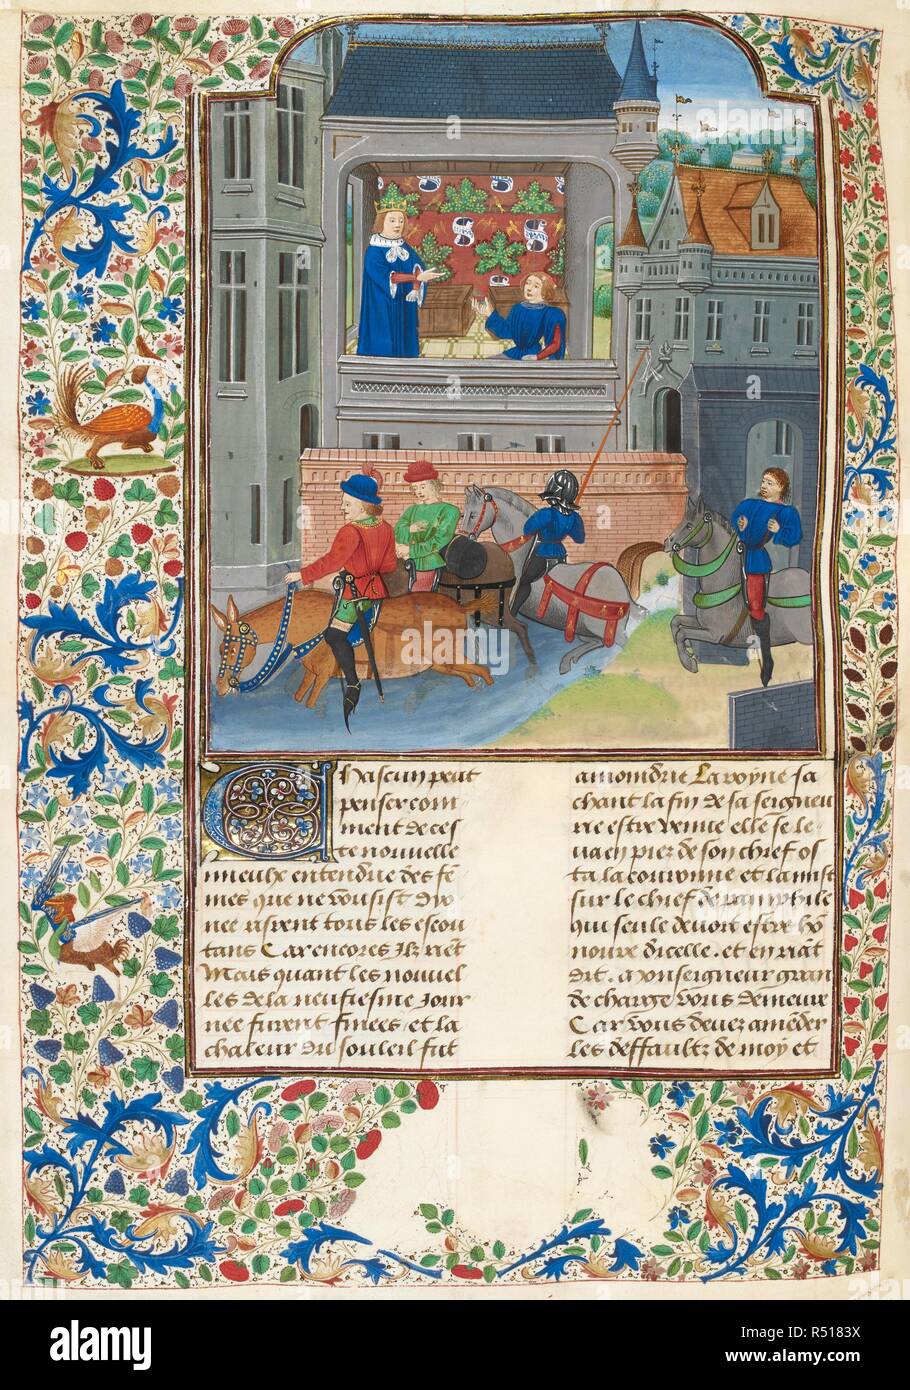 Chascun peut
penser com-
ment de ces
te nouvelle
mieulx entendue des fe
mes que ne voulsist dyo
nee rirent tous les escou
tans Car encores ilz rient
Mais quant les nouvel
les de la neufiesme jour
nee furent finees et la
chaleur du souleil fut
amoindrie La royne sa
chant la fin de sa seigneu
rie estre venue elle se le
va en piez de son chief os
ta la couronne et la mist
sur le chief de pamphile
qui seule devoit estre ho
nouree dicelle. et en riant
dit. Monseigneur gran
de charge vous demeure
Car vous devez amender
les deffaultz de moy et
alamy
a
Image ID: R5183X
www.alamy.com